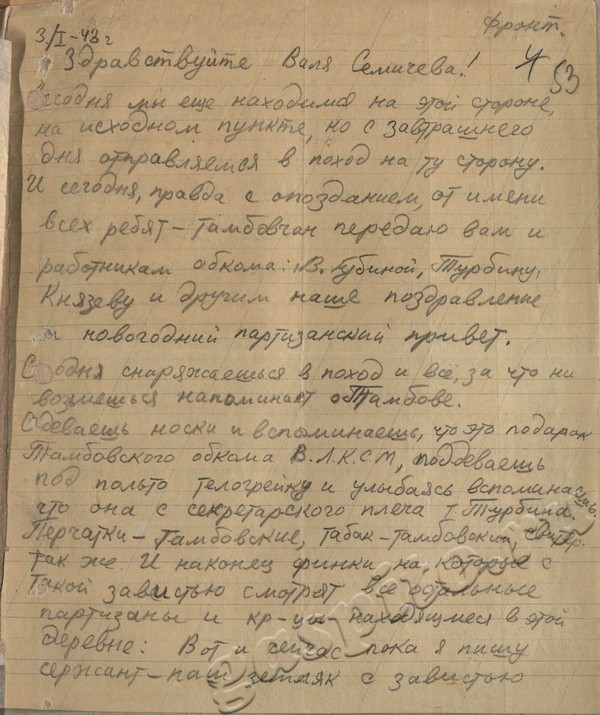 3/I-43 г
Фронт.
Здравствуйте Валя Семичева!
53
Сегодня мы еще находимся на этой стороне,
на исходном пункте, но с завтрашнего
дня отправляемся в поход на ту сторону.
И сегодня, правда с опозданием, от имени
всех ребят – тамбовчан передаю вам и
работникам обкома: В. Губиной, Турбину,
Князеву и другим наше поздравление
и новогодний партизанский привет.
Сегодня снаряжаешься в поход и всё, за что ни
возмешься напоминает о Тамбове.
Одеваешь носки и вспоминаешь, что это подарок
Тамбовского обкома В.Л.К.С.М, поддеваешь
под польто телогрейку и улыбаясь вспоминаешь,
что она с секретарского плеча т. Турбина.
Перчатки – тамбовские, табак – тамбовский, свитр.
так же. И наконец финки на, которые с
такой завистью смотрят все остальные
партизаны и кр-цы – находящиеся в этой
деревне: Вот и сейчас пока я пишу
сержант – наш земляк с завистью